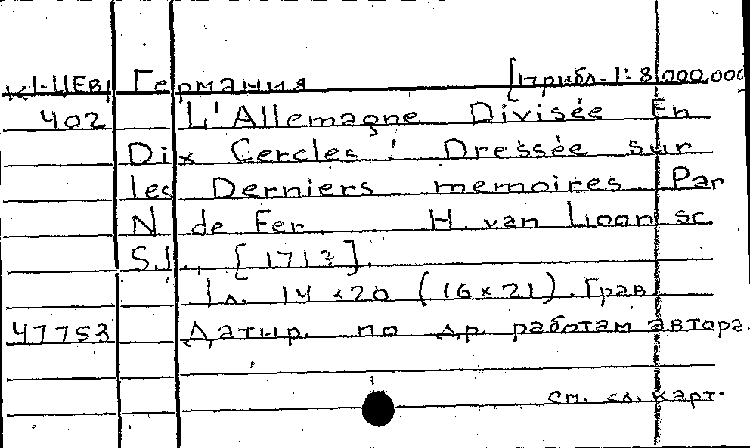 К1-ЦЕВ1 Германия [прибл. 1:8.000.000
402 L'Allemagne Divisée En
Dix Cercles ! Dressée sur
les Derniers memoires Par
N de Fer. H. van Loon sc.
S.l., [171?].
1 л. 14 x 20 (16 x 21). Грав
47753 Датир. по др. работам автора.
см. сл. карт.